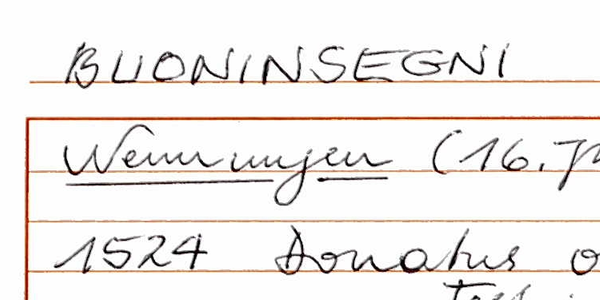 BUONINSEGNI
Wenningen (16. Jh
1524 Donatus